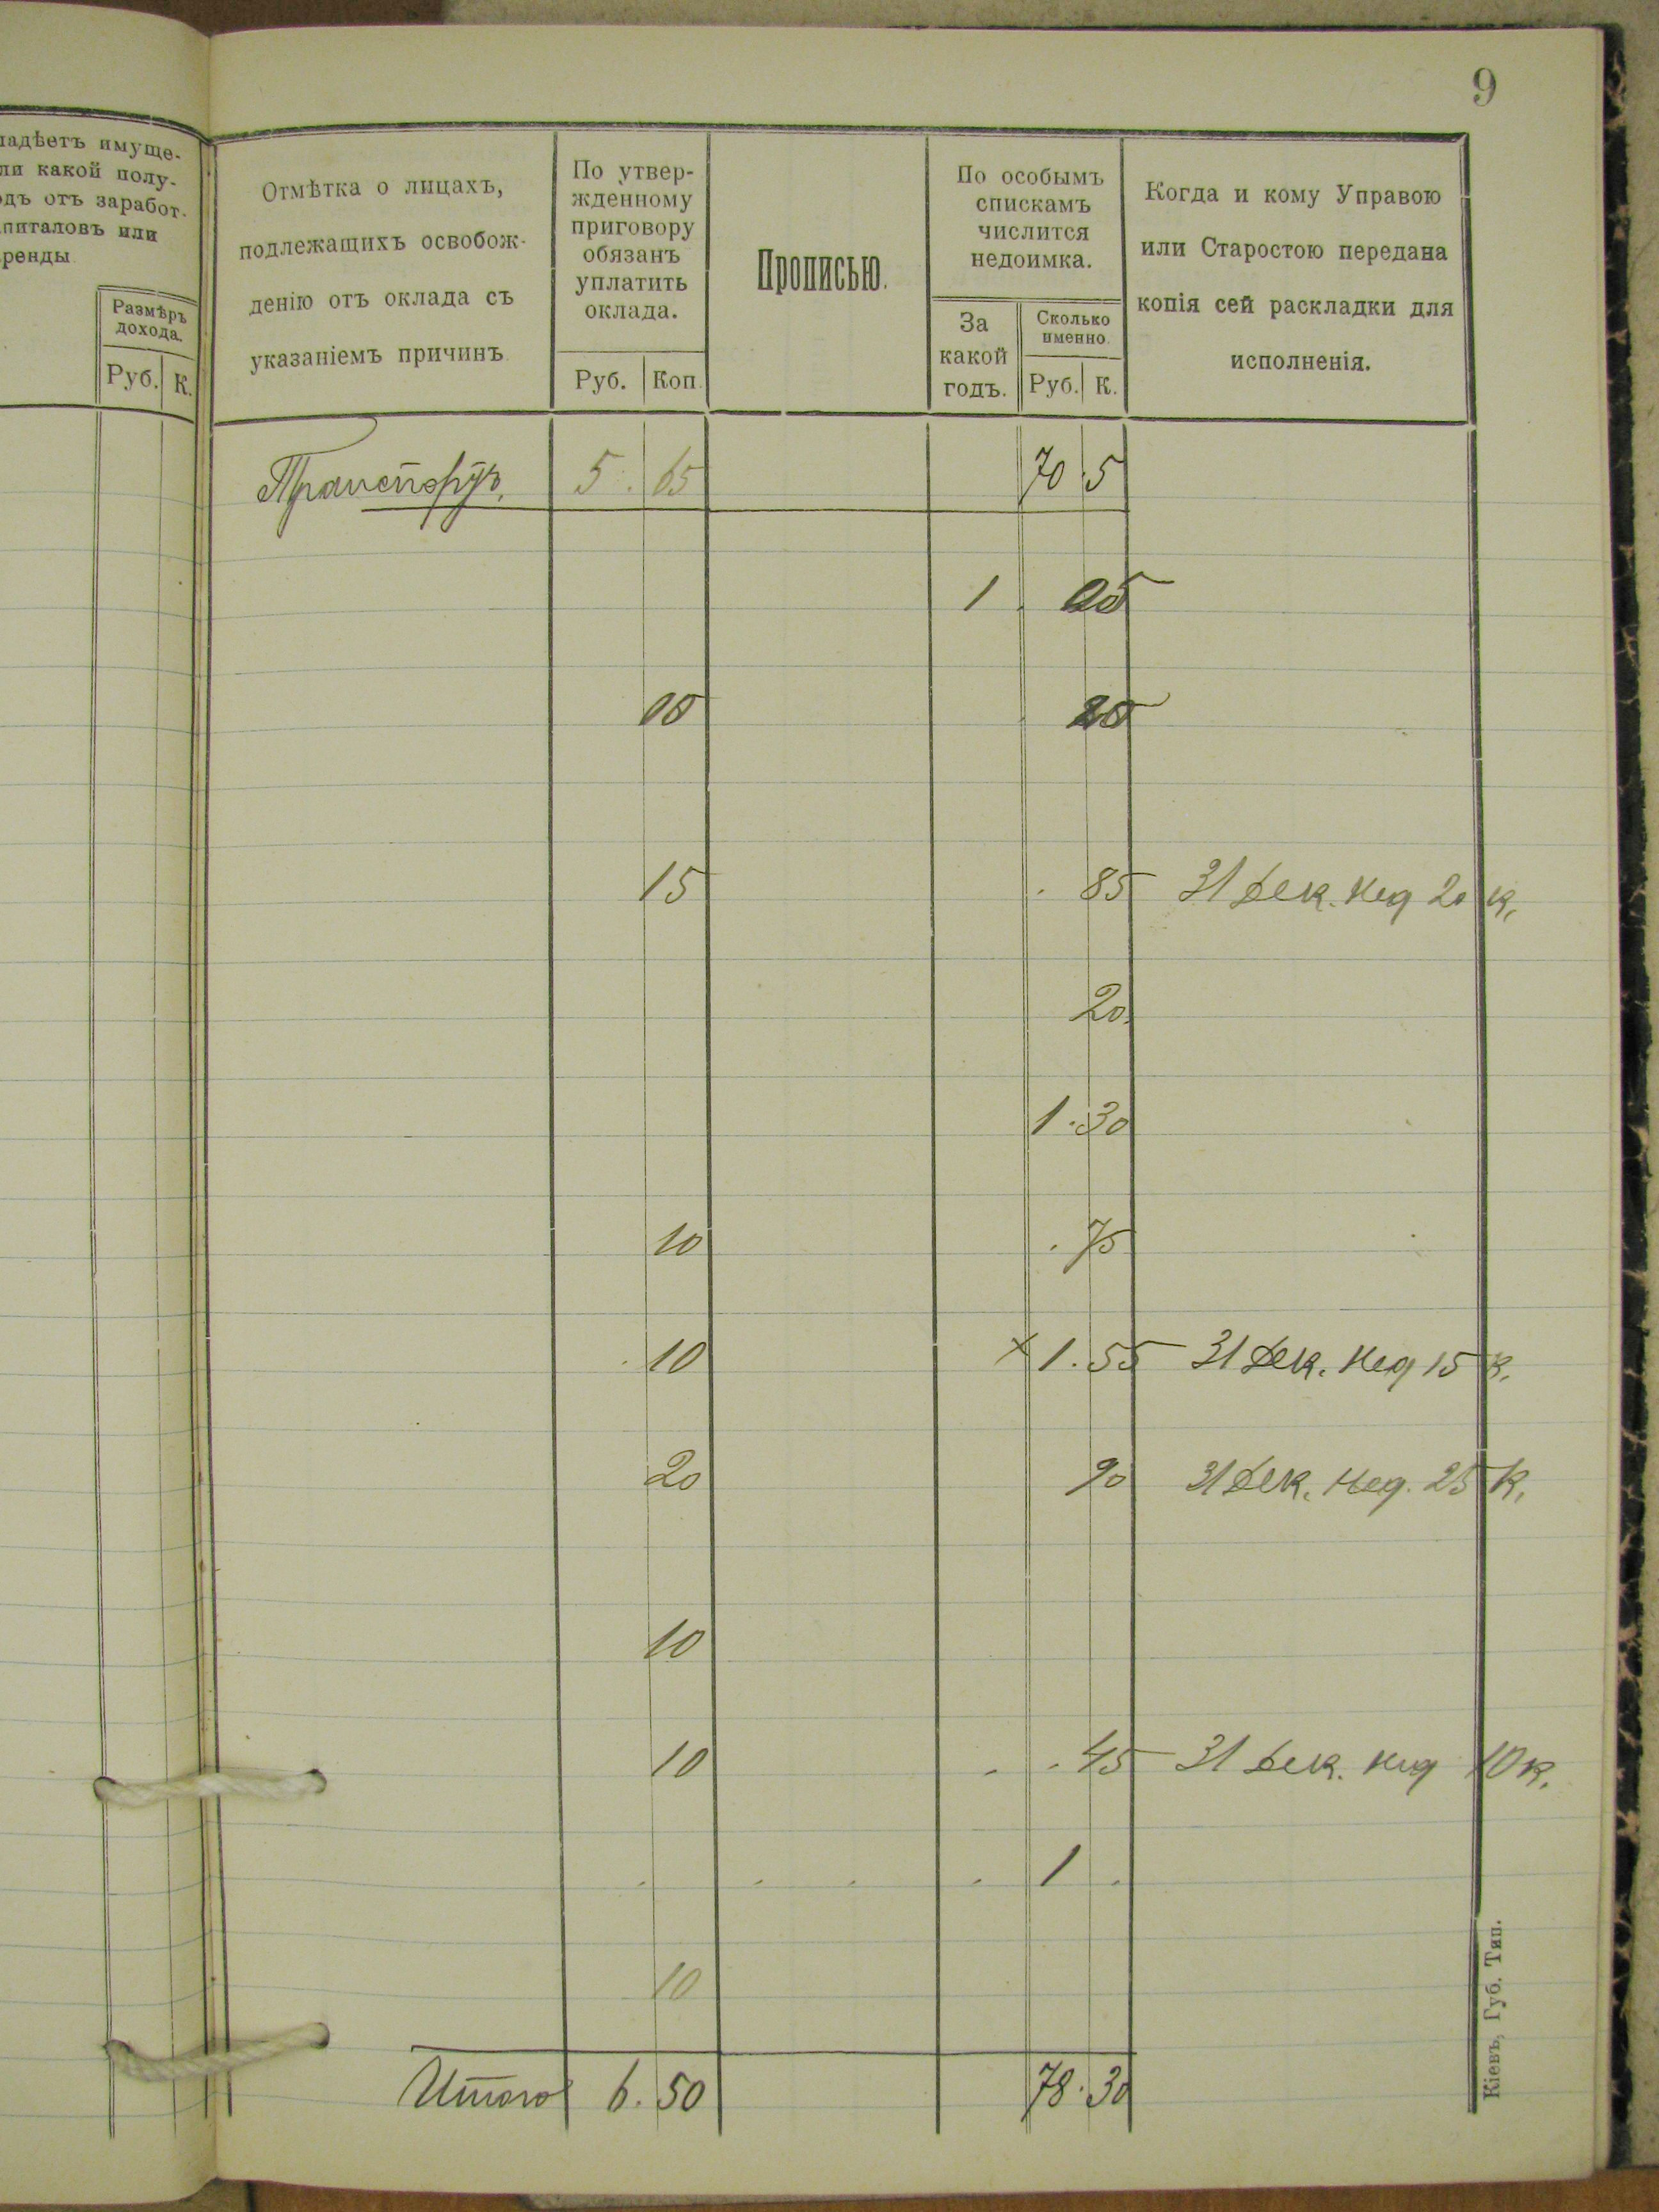 9
ладѣетъ имуще-
ли какой полу-
одъ отъ заработ-
апиталовъ или
ренды
Размѣръ
дохода.
Руб. К.
Отмѣтка о лицахъ,
подлежащихъ освобож-
денію отъ оклада съ
указаніемъ причинъ
По утвер-
жденному
приговору
обязанъ
уплатить
оклада.
Руб. Коп.
Прописью.
По особымъ
спискамъ
числится
недоимка.
За
какой
годъ.
Сколько
именно.
Руб. К.
Когда и кому Управою
или Старостою передана
копія сей раскладки для
исполненія.
Транспортъ. 5. 65 70. 5
1 05
20
15 85 31 Дек. нед 20 к.
20
1. 30
10 75
10 × 1. 55 31 Дек. нед 15 к.
20 90 31 Дек. нед. 25 к.
10
10 45 31 Дек. нед 10 к.
1
10
Итого 6. 50 78. 30
Кіевъ, Губ. Тип.